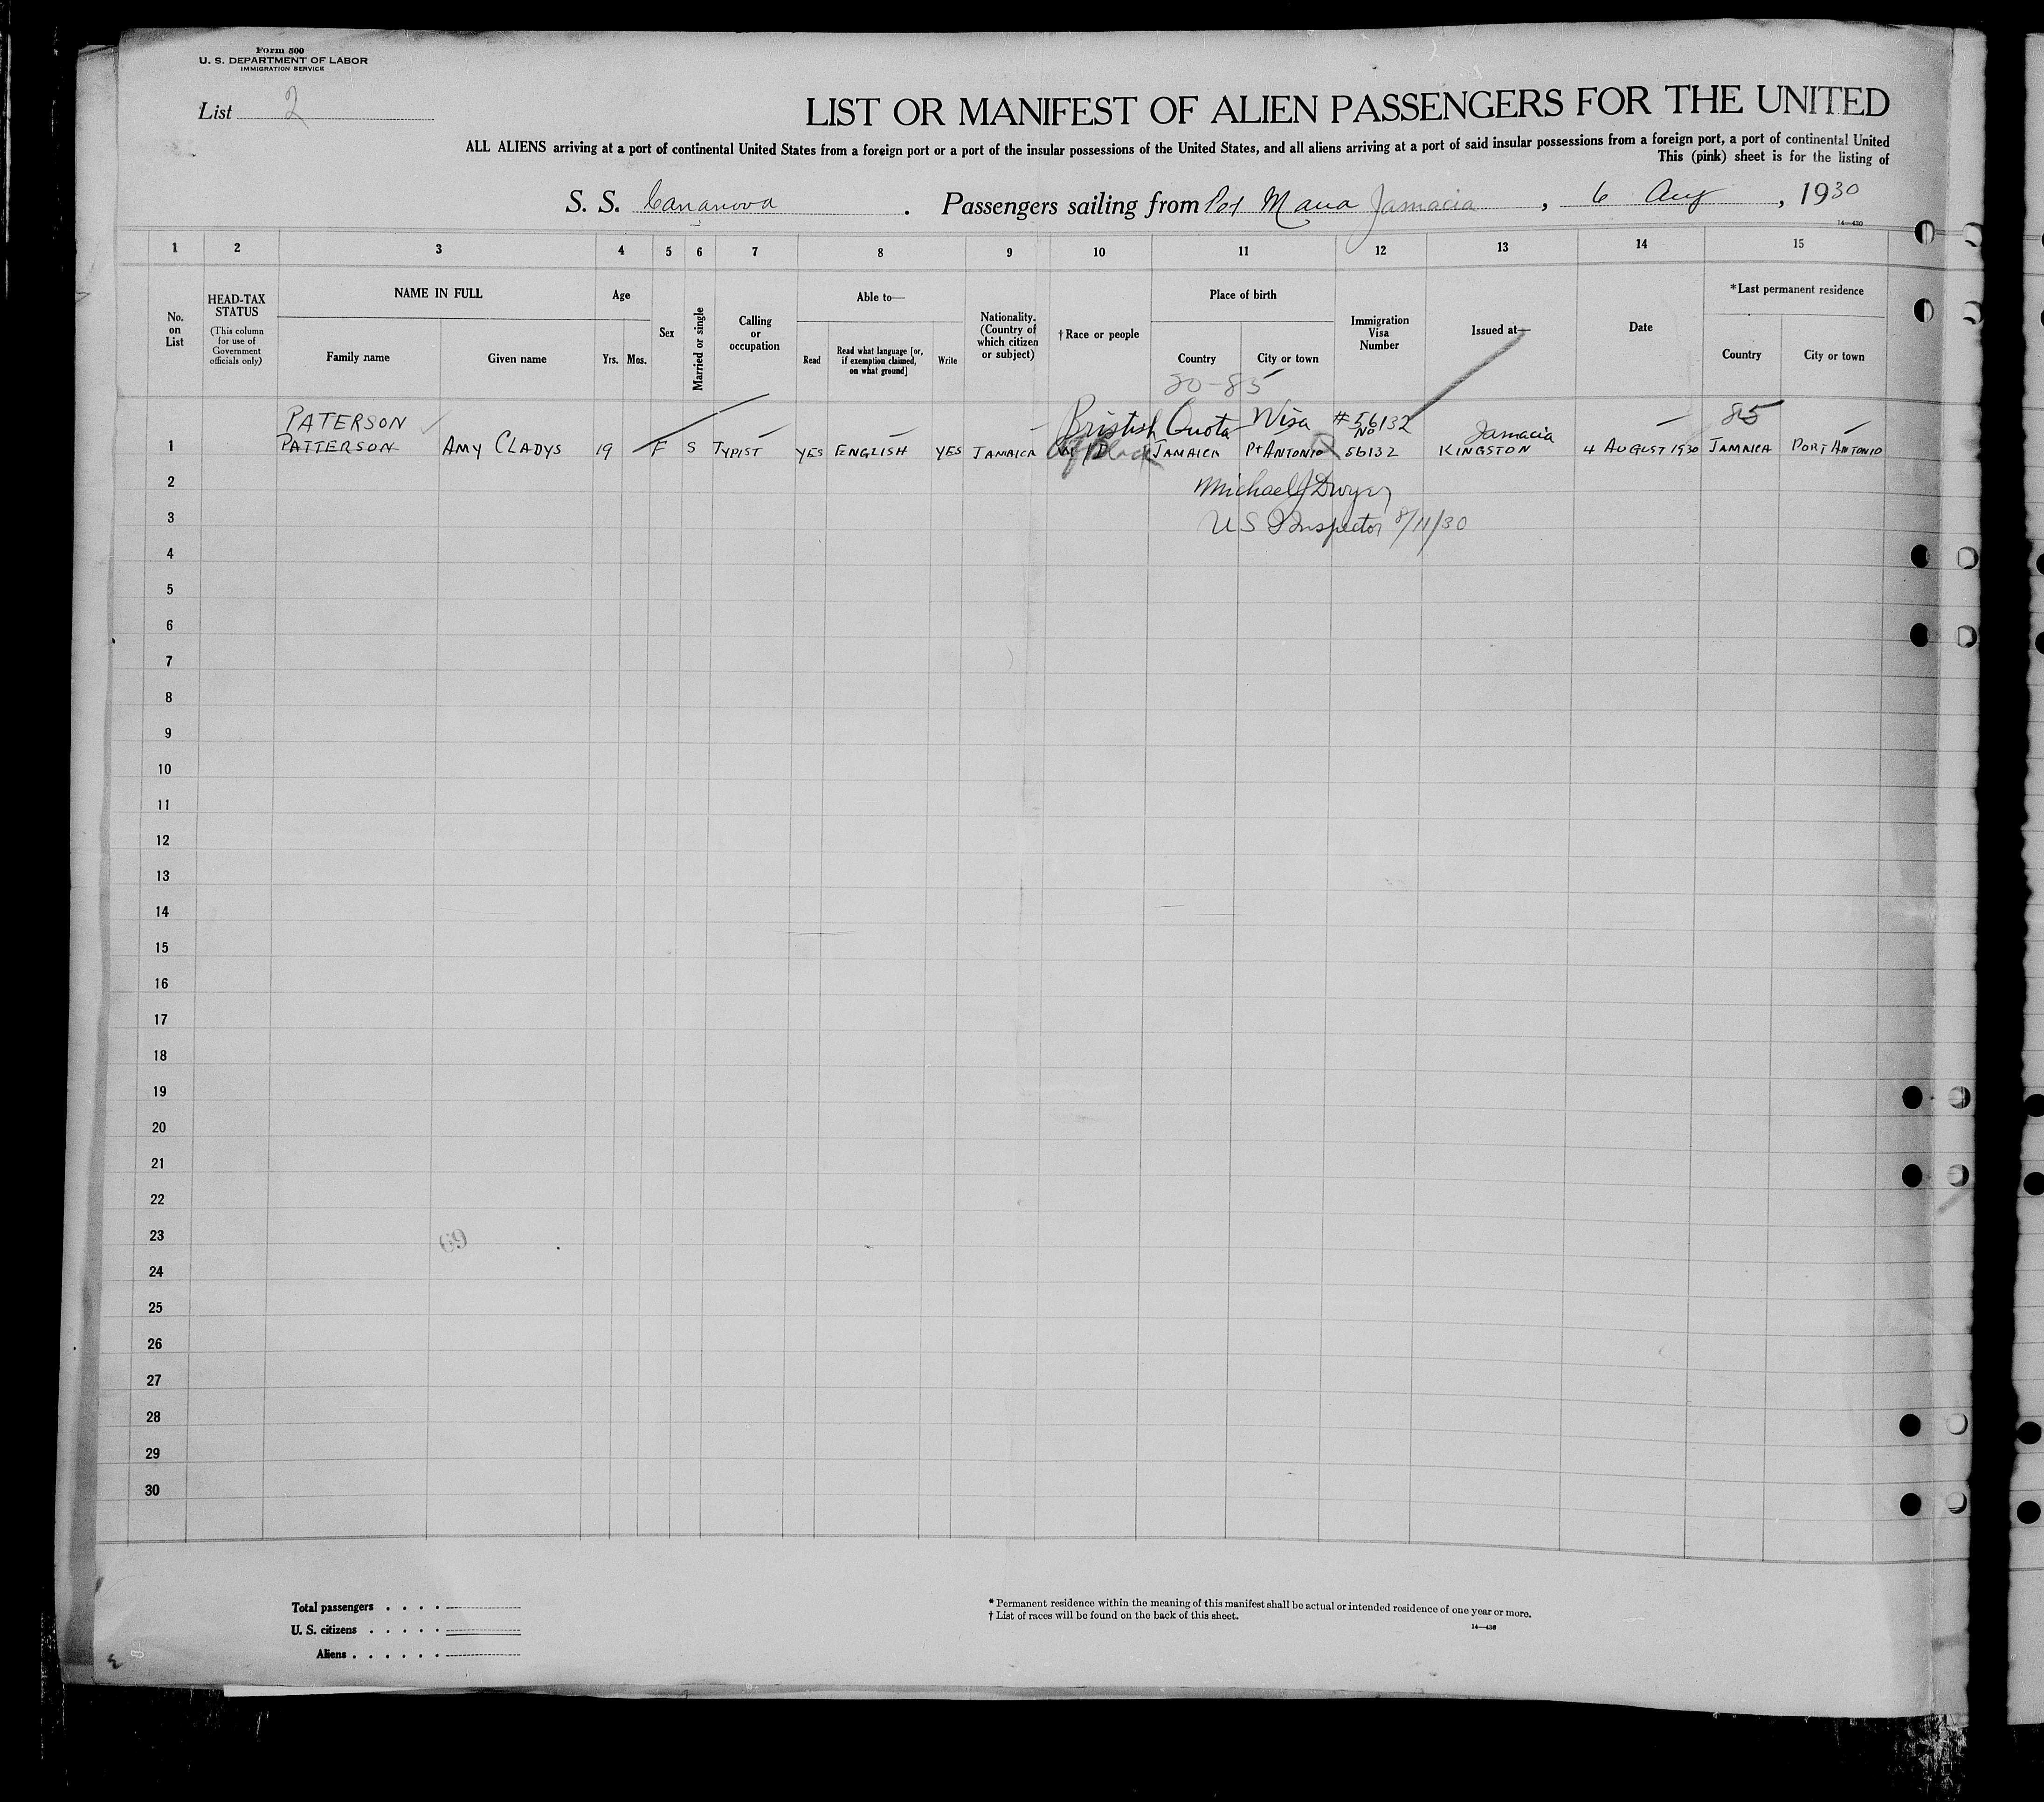 Form 500
U. S. DEPARTMENT OF LABOR
IMMIGRATION SERVICE
List 2
LIST OR MANIFEST OF ALIEN PASSENGERS FOR THE UNITED
ALL ALIENS arriving at a port of continental United States from a foreign port or a port of the insular possessions of the United States, and all aliens arriving at a port of said insular possessions from a foreign port, a port of continental United
This (pink) sheet is for the listing of
S. S. Casanova. Passengers sailing from Maria Jamacia, 6 Aug, 1930
14—430
1 2 3 4 5 6 7 8 9 10 11 12 13 14 15
No. on List
HEAD-TAX STATUS
(This column for use of Government officials only)
NAME IN FULL
Family name
Given name
Age
Yrs. Mos.
Sex
Married or single
Calling or occupation
Able to—
Read
Read what language [or, if exemption claimed, on what ground]
Write
Nationality. (Country of which citizen or subject)
†Race or people
Place of birth
Country
City or town
Immigration Visa Number
Issued at—
Date
*Last permanent residence
Country
City or town
20-85
PATERSON Bristish Quota Visa #56132 85
No Jamacia
1 PATTERSON AMY CLADYS 19 F S TYPIST YES ENGLISH YES JAMAICA JAMAICA Pt ANTONIO 56132 KINGSTON 4 AUGUST 1930 JAMAICA PORT ANTONIO
2 Michael J Dwyer
3 US Inspector 8/11/30
4
5
6
7
8
9
10
11
12
13
14
15
16
17
18
19
20
21
22
23
69
24
25
26
27
28
29
30
Total passengers . . . .
U. S. citizens . . . . .
Aliens . . . . . .
* Permanent residence within the meaning of this manifest shall be actual or intended residence of one year or more.
† List of races will be found on the back of this sheet.
14—430